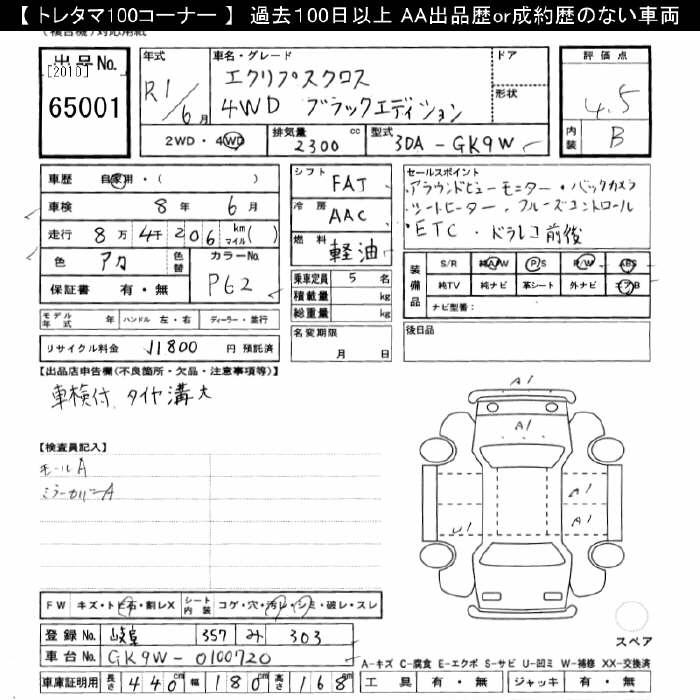 【 トレタマ100コーナー 】 過去100日以上 AA出品歴or成約歴のない車両
出品No.
[2010]
65001
年式
R1/6月
車名・グレード
エクリプスクロス
4WD ブラックエディション
ドア
形状
2WD・4WD
排気量 2300 cc
型式 3DA-GK9W
評価点
4.5
内装 B
車歴 自家用・( )
車検 8年 6月
走行 8万4千206 km マイル ( )
色 アカ 色替
カラーNo. P62
保証書 有・無
シフト FAT
冷房 AAC
燃料 軽油
乗車定員 5 名
積載量 kg
総重量 kg
セールスポイント
・アラウンドビューモニター・バックカメラ
・シートヒーター・クルーズコントロール
・ETC・ドラレコ前後
装備品
S/R 純A/W P/S P/W ABS
純TV 純ナビ 革シート 外ナビ エアB
ナビ型番:
モデル年式 年 ハンドル 左・右 ディーラー・並行
リサイクル料金 11800 円 預託済
名変期限
月 日
後日品
【出品店申告欄(不良箇所・欠品・注意事項等)】
車検付、タイヤ溝大
【検査員記入】
モールA
ミラーカバーA
A1
A1
A1
A1
U1
FW キズ・トビ石・割レX
シート内装 コゲ・穴・汚レ・シミ・破レ・スレ
登録No. 岐阜 357 み 303
車台No. GK9W-0100720
車庫証明用 長さ 440cm 幅 180cm 高さ 168cm
スペア
A-キズ C-腐食 E-エクボ S-サビ U-凹ミ W-補修 XX-交換済
工具 有・無 ジャッキ 有・無